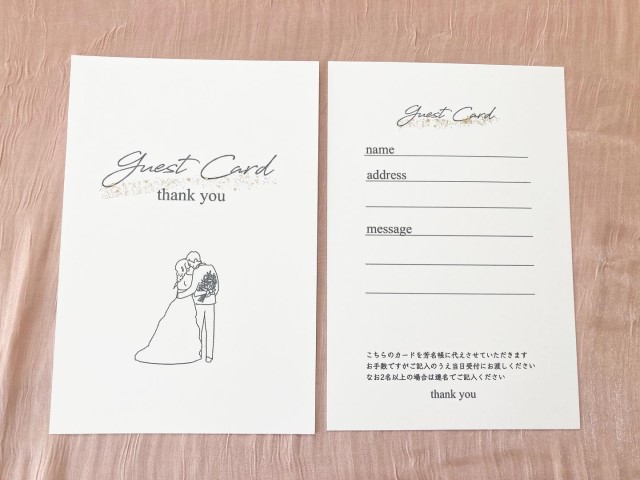 Guest Card
thank you
Guest Card
name
address
message
こちらのカードを芳名帳に代えさせていただきます
お手数ですがご記入のうえ当日受付にお渡しください
なお2名以上の場合は連名でご記入ください
thank you